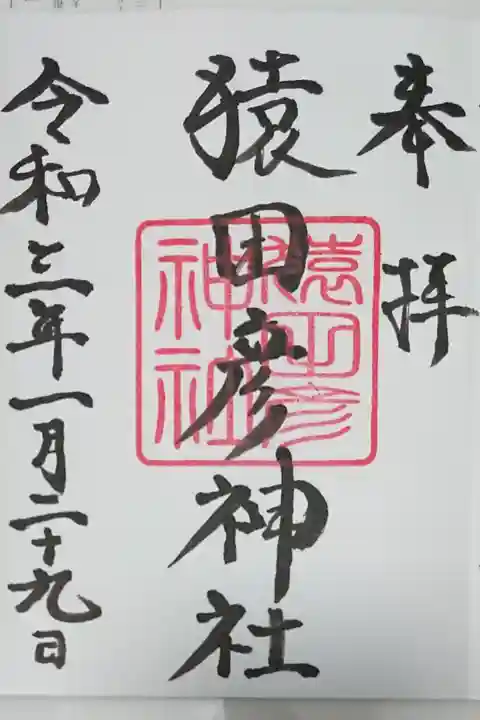 奉拝
猿田彦神社
猿田彦
神社
令和三年一月二十九日